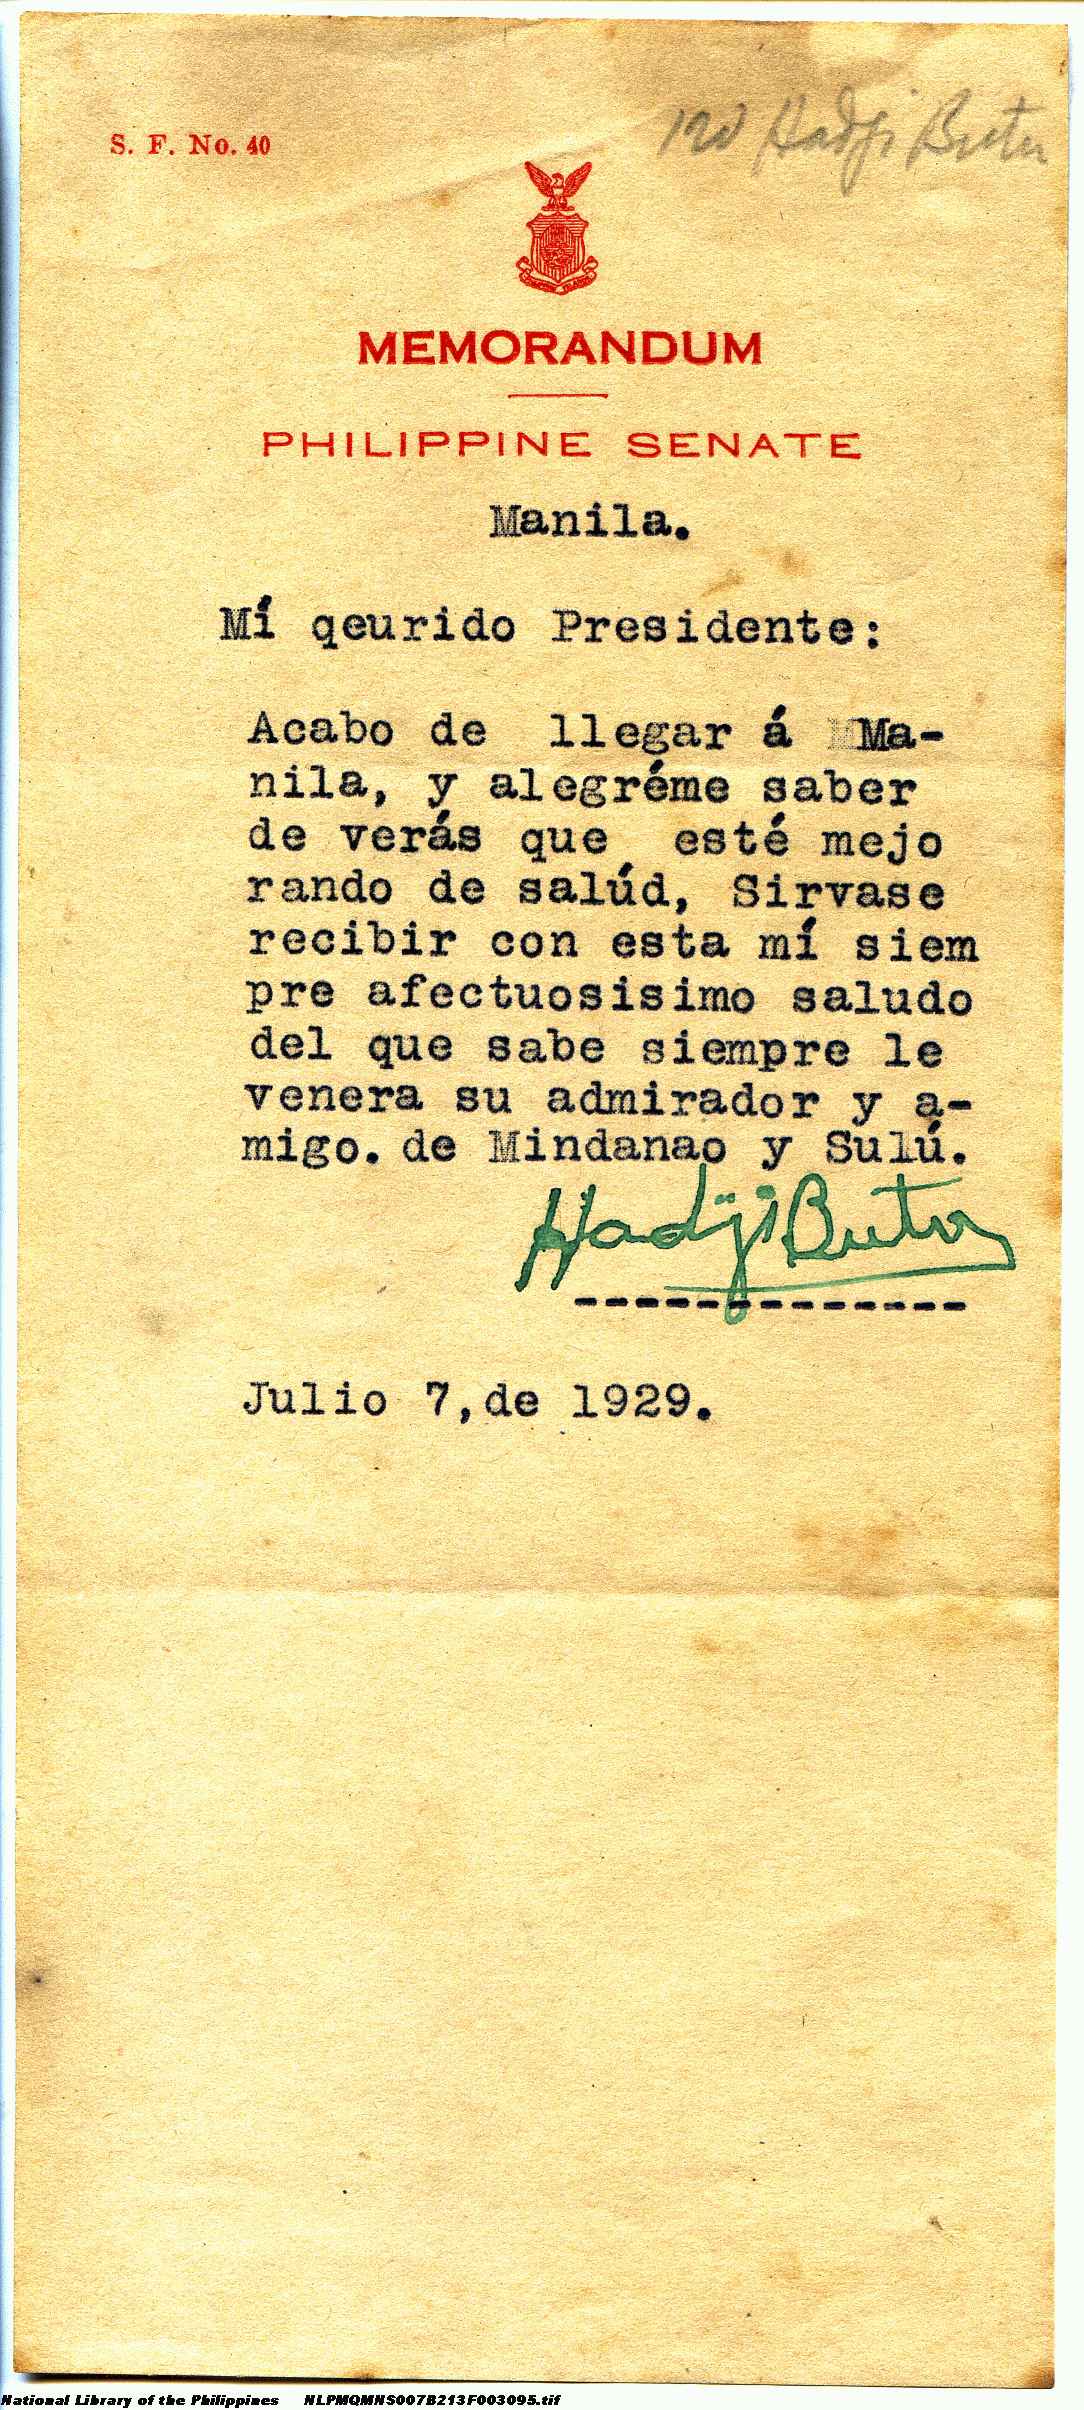 S. F. No. 40
Hadji Butu
MEMORANDUM
PHILIPPINE SENATE
Manila.
Mí qeurido Presidente:
Acabo de llegar á Ma-
nila, y alegréme saber
de verás que esté mejo
rando de salúd, Sirvase
recibir con esta mí siem
pre afectuosisimo saludo
del que sabe siempre le
venera su admirador y a-
migo. de Mindanao y Sulú.
Hadji Butu
-------------
Julio 7,de 1929.
National Library of the Philippines NLPMQMNS007B213F003095.tif